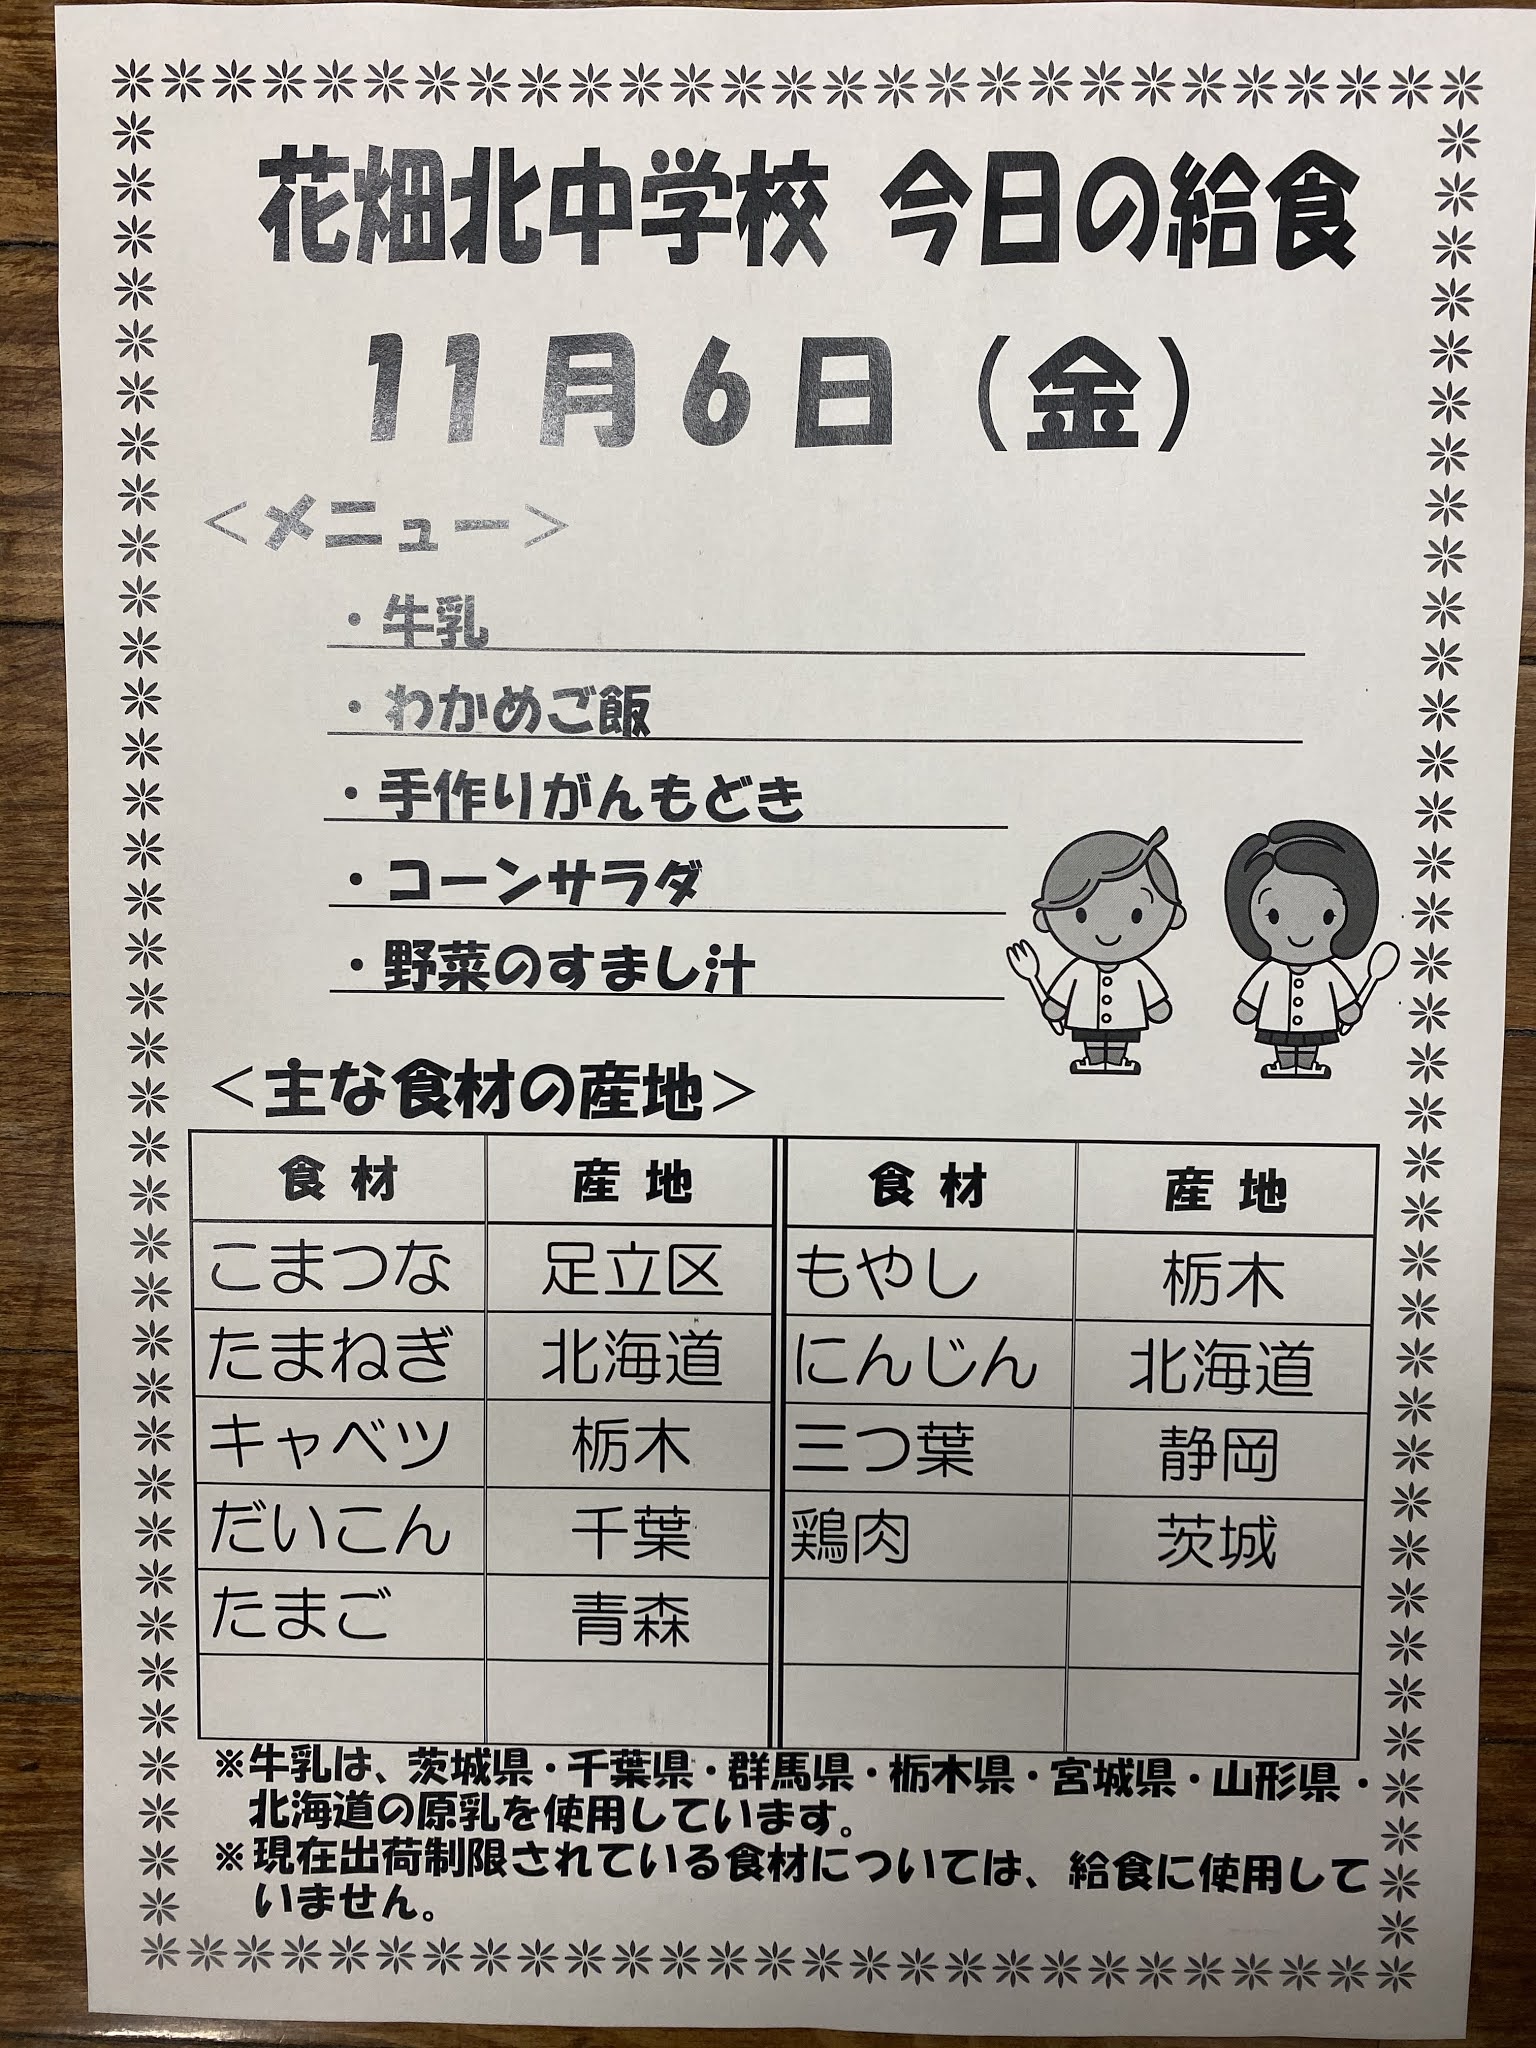 花畑北中学校 今日の給食
11月6日（金）
＜メニュー＞
・牛乳
・わかめご飯
・手作りがんもどき
・コーンサラダ
・野菜のすまし汁
＜主な食材の産地＞
食材 産地 食材 産地
こまつな 足立区 もやし 栃木
たまねぎ 北海道 にんじん 北海道
キャベツ 栃木 三つ葉 静岡
だいこん 千葉 鶏肉 茨城
たまご 青森
※牛乳は、茨城県・千葉県・群馬県・栃木県・宮城県・山形県・
北海道の原乳を使用しています。
※現在出荷制限されている食材については、給食に使用して
いません。